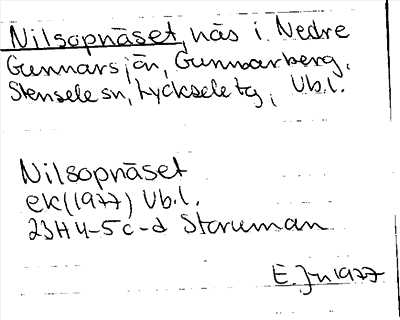 Nilsopnäset, näs i Nedre
Gunnarsjön, Gunnarberg,
Stensele sn, Lycksele tg, Vb.l.
Nilsopnäset
ek (1977) Vb.l.
23H 4-5 c-d Storuman
E. Jn 1977